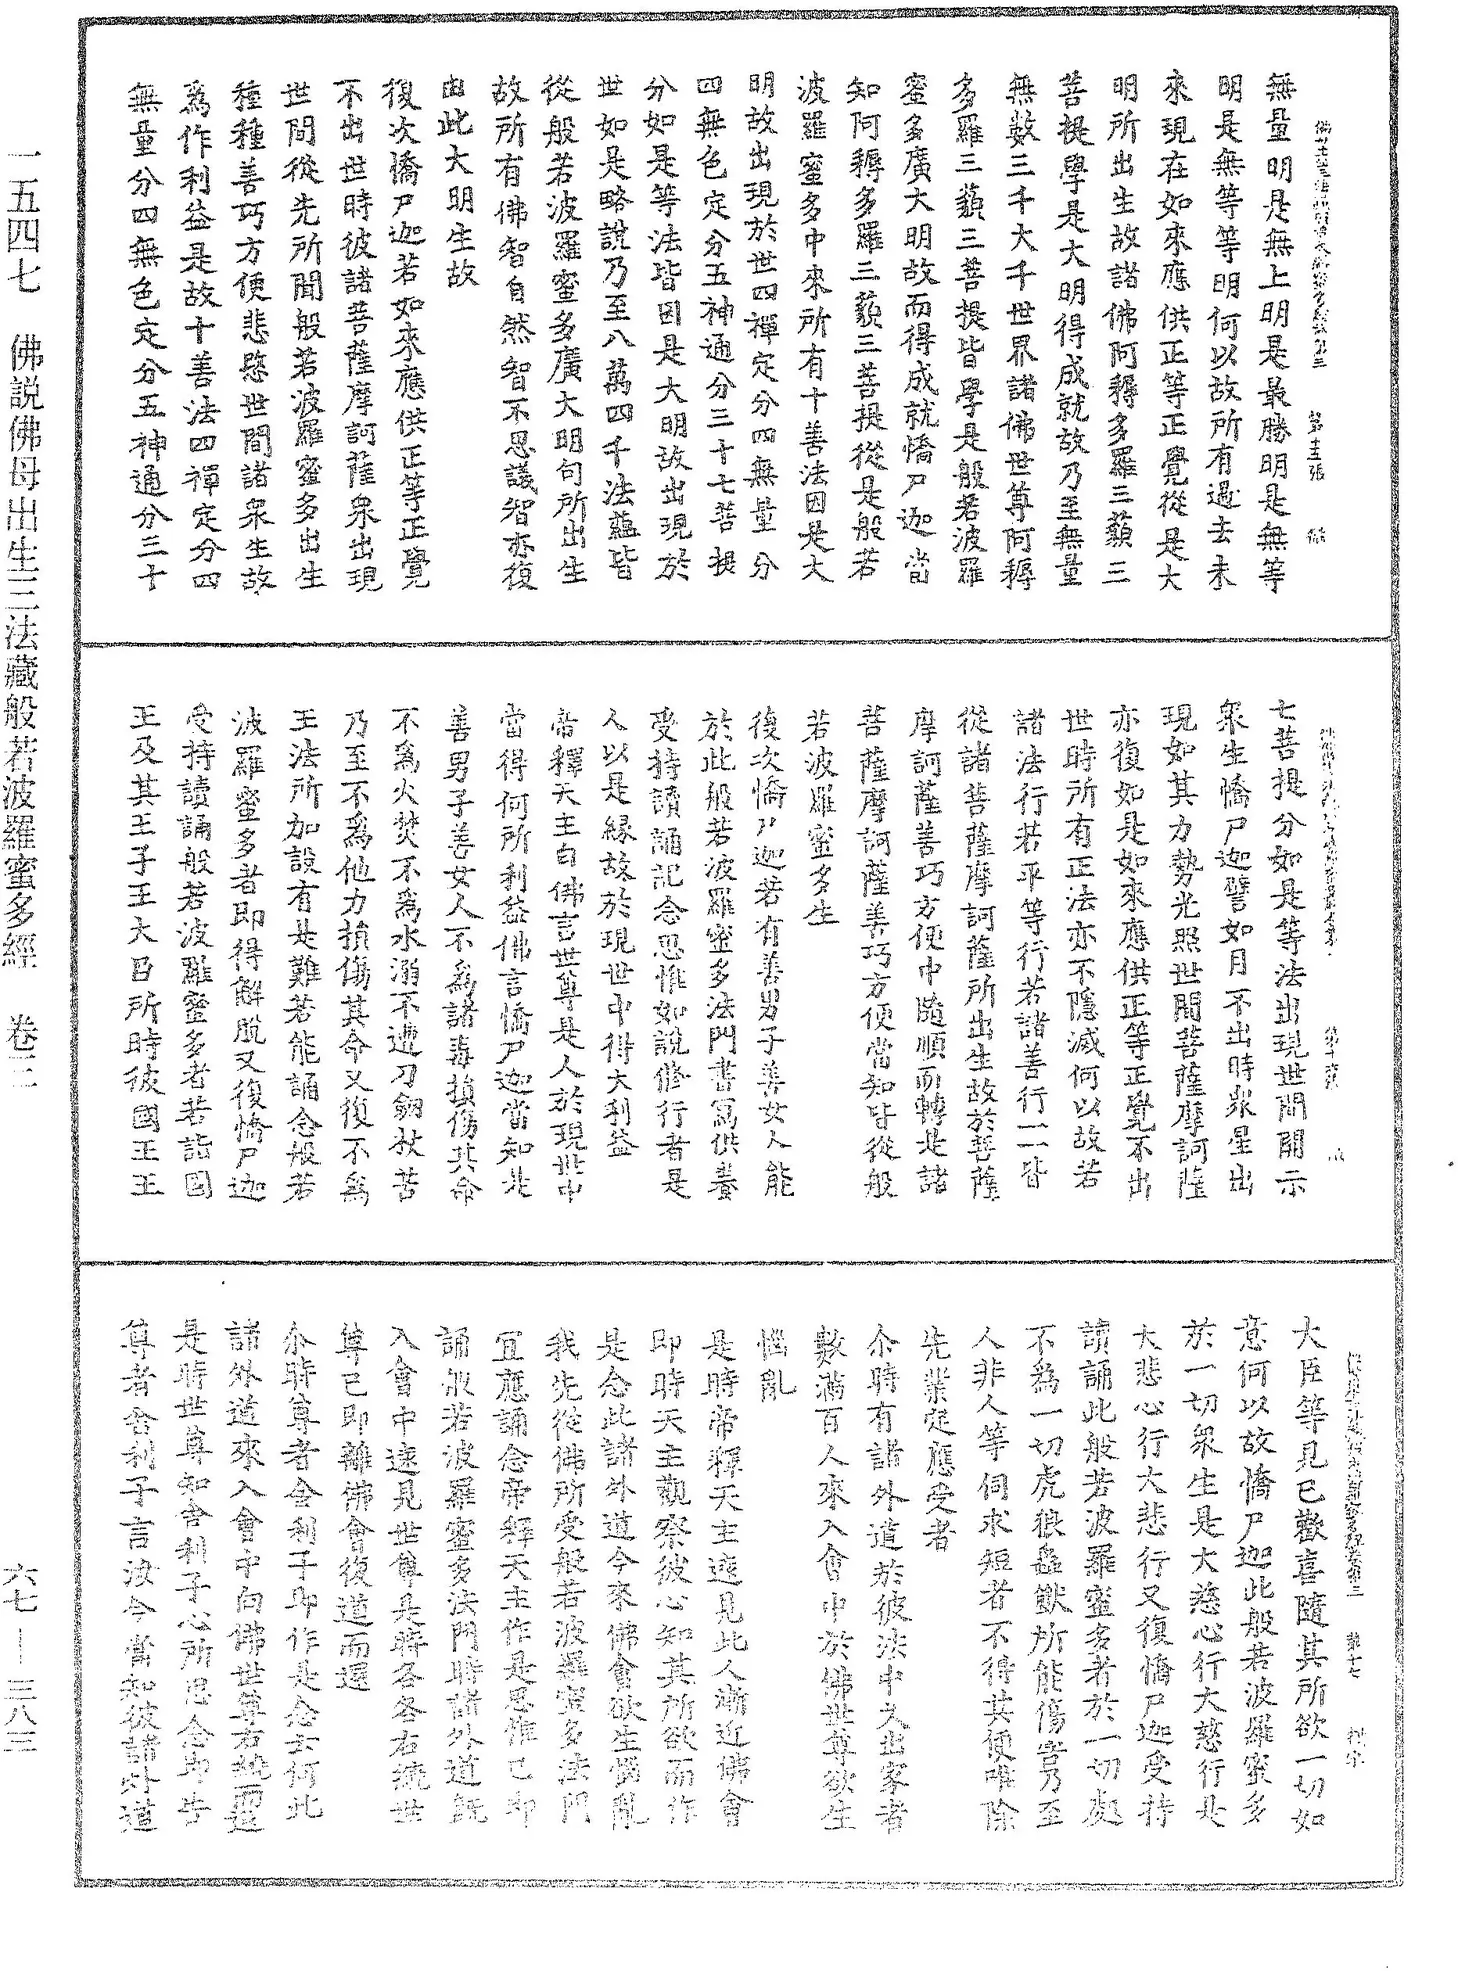 無量明是無上明是最勝明是無等
明是無等等明何以故所有過去未
來現在如來應供正等正覺從是大
明所出生故諸佛阿耨多羅三藐三
菩提學是大明得成就故乃至無量
無數三千大千世界諸佛世尊阿耨
多羅三藐三菩提皆學是般若波羅
蜜多廣大明故而得成就憍尸迦當
知阿耨多羅三藐三菩提從是般若
波羅蜜多中來所有十善法因是大
明故出現於世四禪定分四無量分
四無色定分五神通分三十七菩提
分如是等法皆因是大明故出現於
世如是略說乃至八萬四千法蘊皆
從般若波羅蜜多廣大明句所出生
故所有佛智自然智不思議智亦復
由此大明生故
復次憍尸迦若如來應供正等正覺
不出世時彼諸菩薩摩訶薩衆出現
世間從先所聞般若波羅蜜多出生
種種善巧方便悲愍世間諸衆生故
爲作利益是故十善法四禪定分四
無量分四無色定分五神通分三十
七菩提分如是等法出現世間開示
衆生憍尸迦譬如月不出時衆星出
現如其力勢光照世間菩薩摩訶薩
亦復如是如來應供正等正覺不出
世時所有正法亦不隱滅何以故若
諸法行若平等行若諸善行一一皆
從諸菩薩摩訶薩所出生故於菩薩
摩訶薩善巧方便中隨順而轉是諸
菩薩摩訶薩善巧方便當知皆從般
若波羅蜜多生
復次憍尸迦若有善男子善女人能
於此般若波羅蜜多法門書寫供養
受持讀誦記念思惟如說修行者是
人以是緣故於現世中得大利益
帝釋天主白佛言世尊是人於現世中
當得何所利益佛言憍尸迦當知此
善男子善女人不爲諸毒損傷其命
不爲火焚不爲水溺不遭刀劒杖苦
乃至不爲他力損傷其命又復不爲
王法所加設有是難若能誦念般若
波羅蜜多者即得解脫又復憍尸迦
受持讀誦般若波羅蜜多者若詣國
王及其王子王大臣所時彼國王王
大臣等見已歡喜隨其所欲一切如
意何以故憍尸迦此般若波羅蜜多
於一切衆生是大慈心行大慈行是
大悲心行大悲行又復憍尸迦受持
讀誦此般若波羅蜜多者於一切處
不爲一切虎狼蟲獸所能傷害乃至
人非人等伺求短者不得其便唯除
先業定應受者
尒時有諸外道於彼法中又出家者
數滿百人來入會中於佛世尊欲生
惱亂
是時帝釋天主遙見此人漸近佛會
即時天主觀察彼心知其所欲而作
是念此諸外道今來佛會欲生惱亂
我先從佛所受般若波羅蜜多法門
宜應誦念帝釋天主作是思惟已即
誦般若波羅蜜多法門時諸外道旣
入會中速見世尊是時各各右繞世
尊已即離佛會復道而還
尒時尊者舍利子即作是念云何此
諸外道來入會中向佛世尊右繞而還
是時世尊知舍利子心所思念即告
尊者舍利子言汝今當知彼諸外道
一五四七 佛說佛母出生三法藏般若波羅蜜多經 卷三
六七—三八三